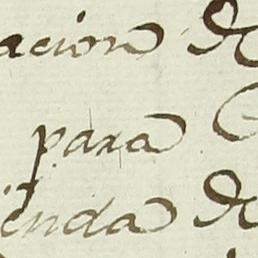 acion de
para
ienda de